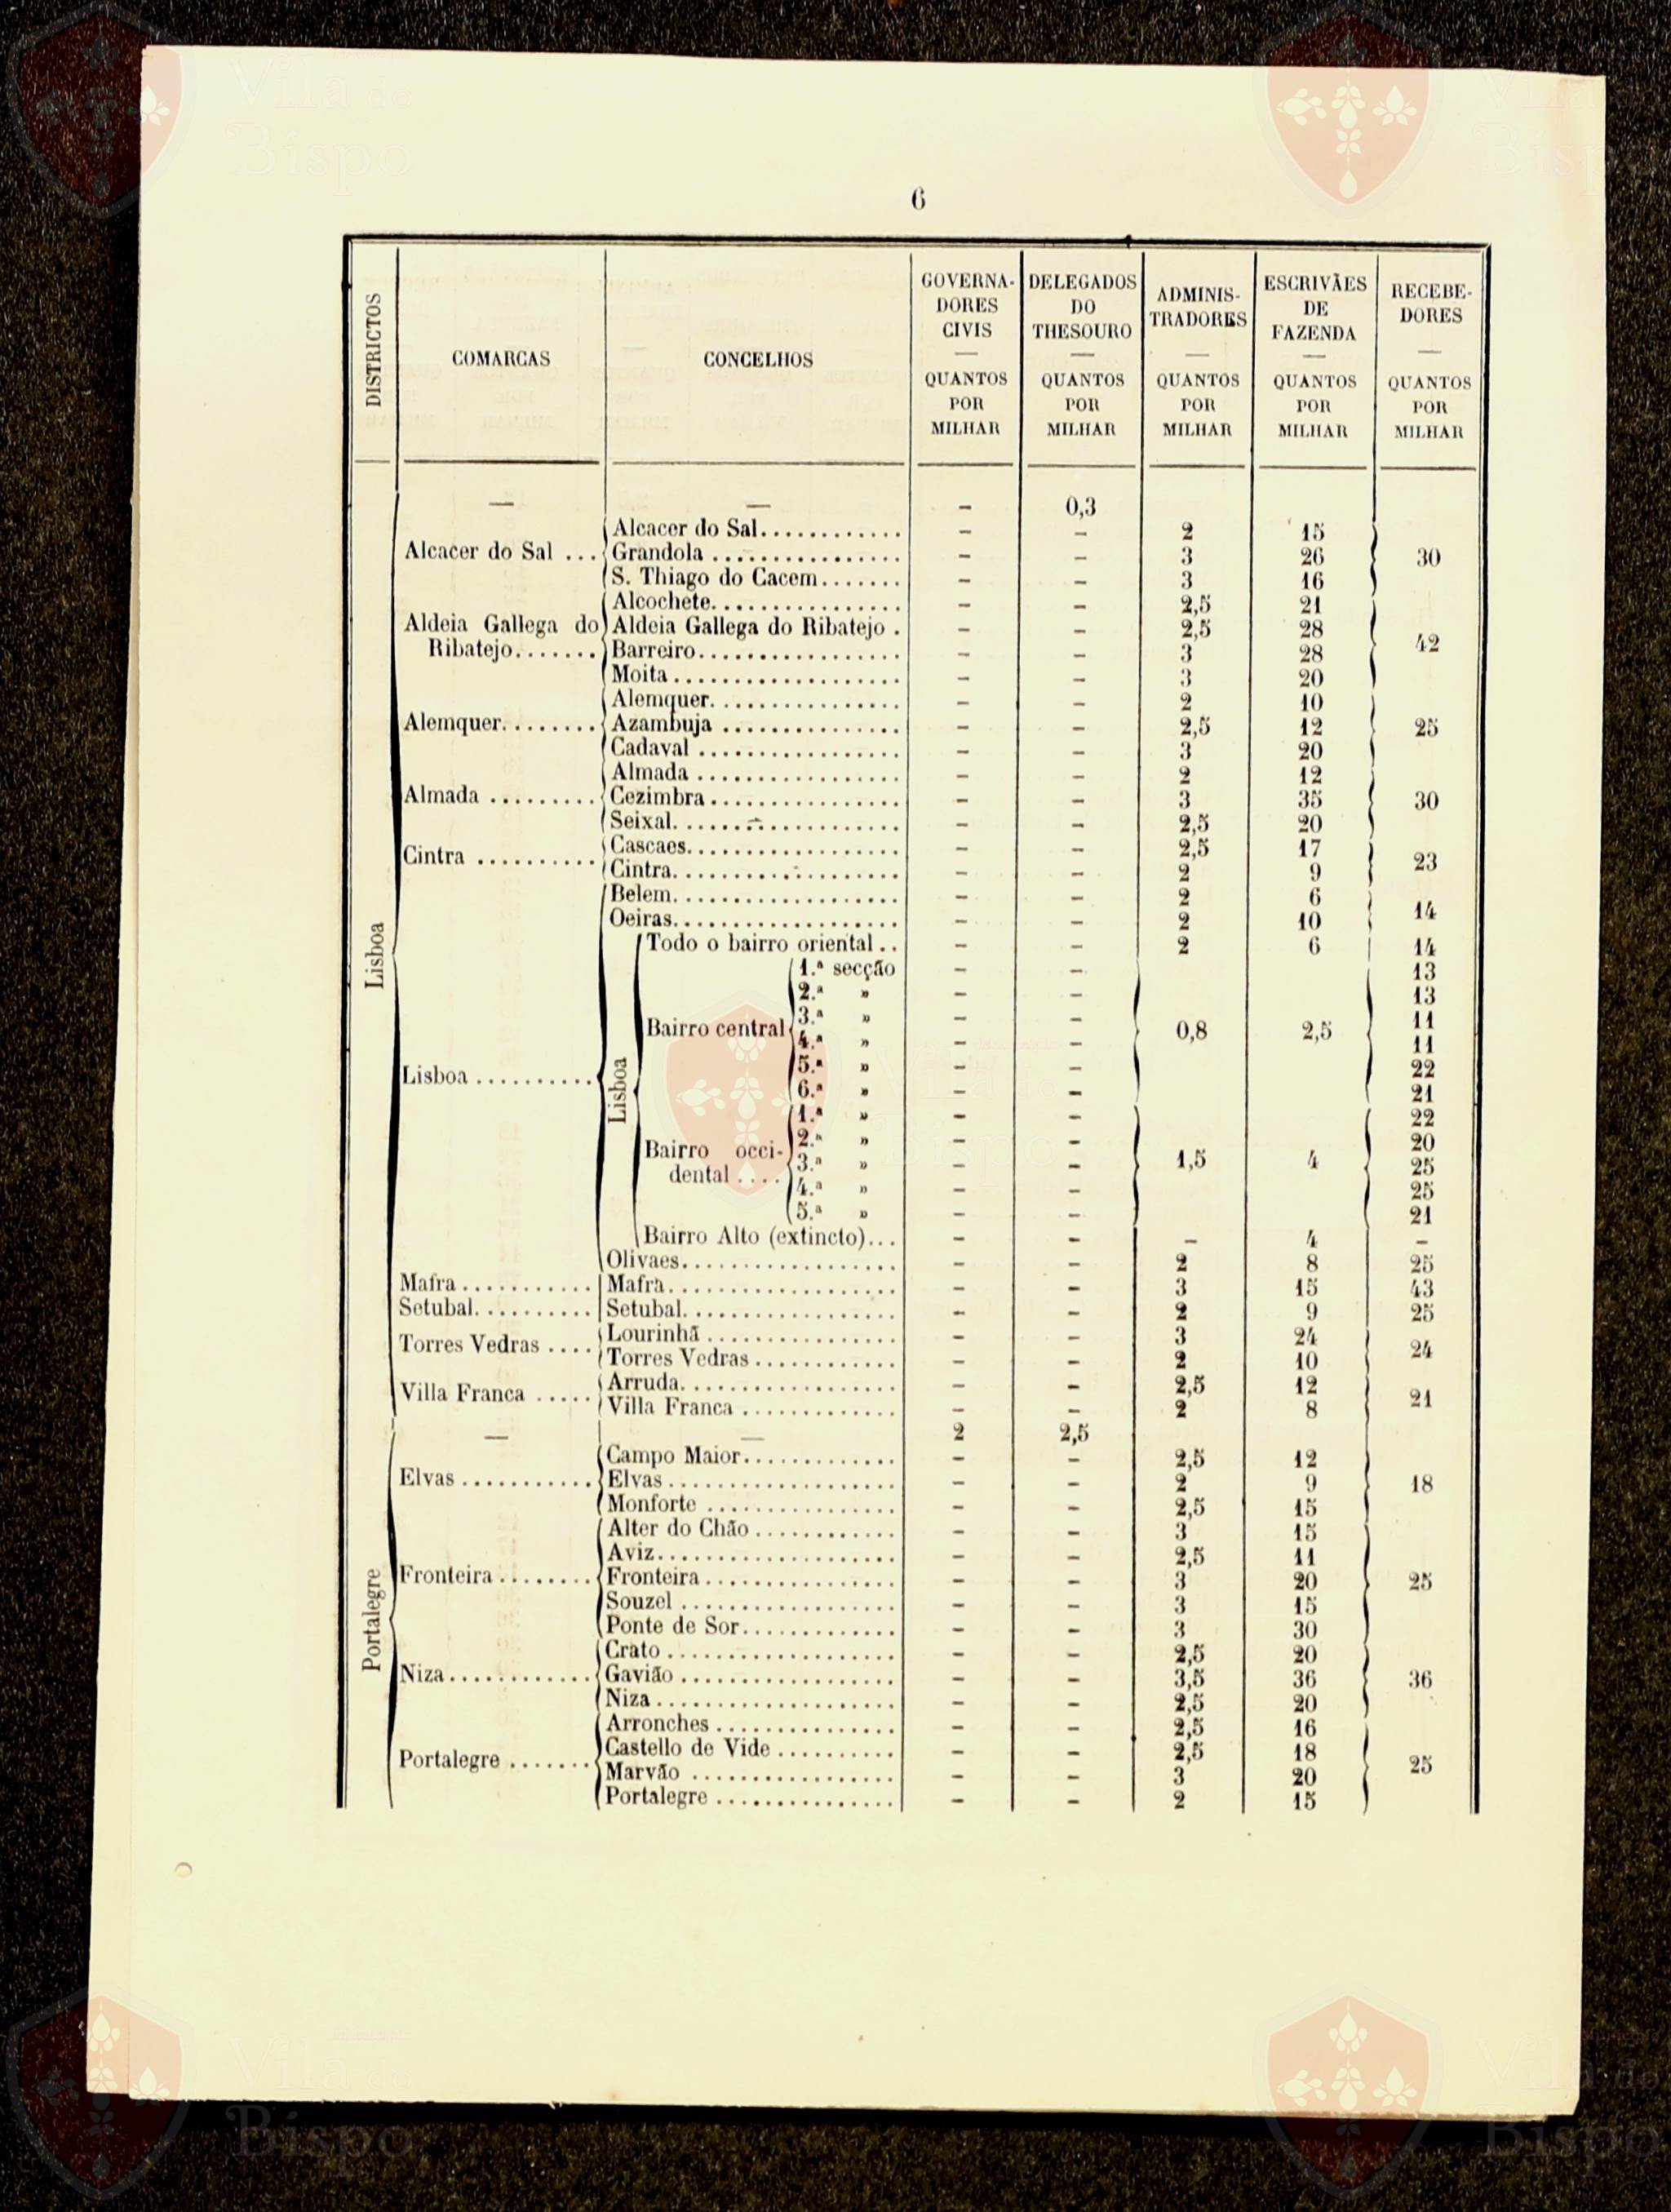 6
DISTRICTOS
COMARCAS
CONCELHOS
GOVERNA-
DORES
CIVIS
—
QUANTOS
POR
MILHAR
DELEGADOS
DO
THESOURO
—
QUANTOS
POR
MILHAR
ADMINIS-
TRADORES
—
QUANTOS
POR
MILHAR
ESCRIVÃES
DE
FAZENDA
—
QUANTOS
POR
MILHAR
RECEBE-
DORES
—
QUANTOS
POR
MILHAR
Lisboa
— — - 0,3
Alcacer do Sal............ - - 2 15
Alcacer do Sal ... Grandola ................ - - 3 26 30
S. Thiago do Cacem....... - - 3 16
Alcochete................ - - 2,5 21
Aldeia Gallega do Aldeia Gallega do Ribatejo . - - 2,5 28
Ribatejo....... Barreiro................. - - 3 28 42
Moita ................... - - 3 20
Alemquer................ - - 2 10
Alemquer........ Azambuja ............... - - 2,5 12 25
Cadaval ................. - - 3 20
Almada ................. - - 2 12
Almada ......... Cezimbra................ - - 3 35 30
Seixal................... - - 2,5 20
Cascaes.................. - - 2,5 17
Cintra .......... 23
Cintra................... - - 2 9
Belem................... - - 2 6
Oeiras................... - - 2 10 14
Lisboa
Todo o bairro oriental .. - - 2 6 14
1.ª secção - - 13
2.ª » - - 13
3.ª » - - 11
Bairro central 0,8 2,5
4.ª » - - 11
5.ª » - - 22
Lisboa ..........
6.ª » - - 21
1.ª » - - 22
2.ª » - - 20
Bairro occi-
3.ª » - - 1,5 4 25
dental ....
4.ª » - - 25
5.ª » - - 21
Bairro Alto (extincto)... - - - 4 -
Olivaes................... - - 2 8 25
Mafra ........... Mafra.................... - - 3 15 43
Setubal.......... Setubal................... - - 2 9 25
Lourinhã ................ - - 3 24
Torres Vedras .... 24
Torres Vedras ............ - - 2 10
Arruda................... - - 2,5 12
Villa Franca ..... 21
Villa Franca ............. - - 2 8
Portalegre
— — 2 2,5
Campo Maior............. - - 2,5 12
Elvas ........... Elvas .................... - - 2 9 18
Monforte ................ - - 2,5 15
Alter do Chão ............ - - 3 15
Aviz..................... - - 2,5 11
Fronteira ........ Fronteira ................ - - 3 20 25
Souzel ................... - - 3 15
Ponte de Sor............. - - 3 30
Crato .................... - - 2,5 20
Niza............ Gavião ................... - - 3,5 36 36
Niza..................... - - 2,5 20
Arronches ............... - - 2,5 16
Castello de Vide .......... - - 2,5 18
Portalegre ....... 25
Marvão ................. - - 3 20
Portalegre ............... - - 2 15
Vila do
Bispo
Bispo
Vila do
Bispo
Vila do
Bispo